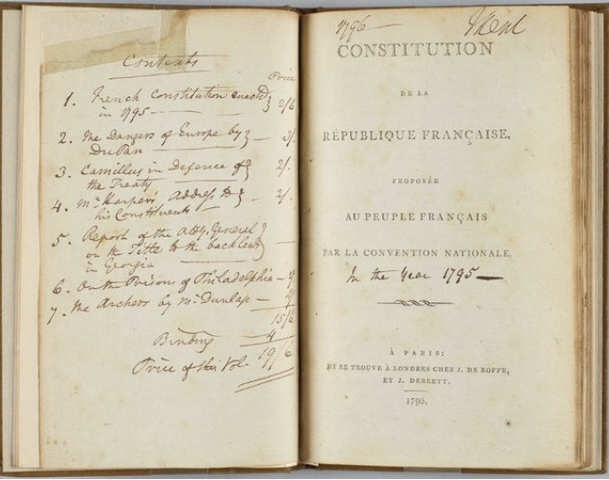 Contents
Price
1. French Constitution enacted
in 1795 — 2/6
2. The Dangers of Europe by
DuPan — 3/.
3. Camillus in Defence of
the Treaty — 2/.
4. Mr Harper's Address to
his Constituents — 2/.
5. Report of the Atty. General
on the Title to the back lands
in Georgia —
6. On the Prisons of Philadelphia —
7. The Archers by Mr Dunlap —
15/6
Binding 4
Price of this Vol. 19/6
1796
CONSTITUTION
DE LA
RÉPUBLIQUE FRANÇAISE,
PROPOSÉE
AU PEUPLE FRANÇAIS
PAR LA CONVENTION NATIONALE.
In the Year 1795 —
À PARIS:
ET SE TROUVE À LONDRES CHEZ J. DE BOFFE,
ET J. DEBRETT.
1795.